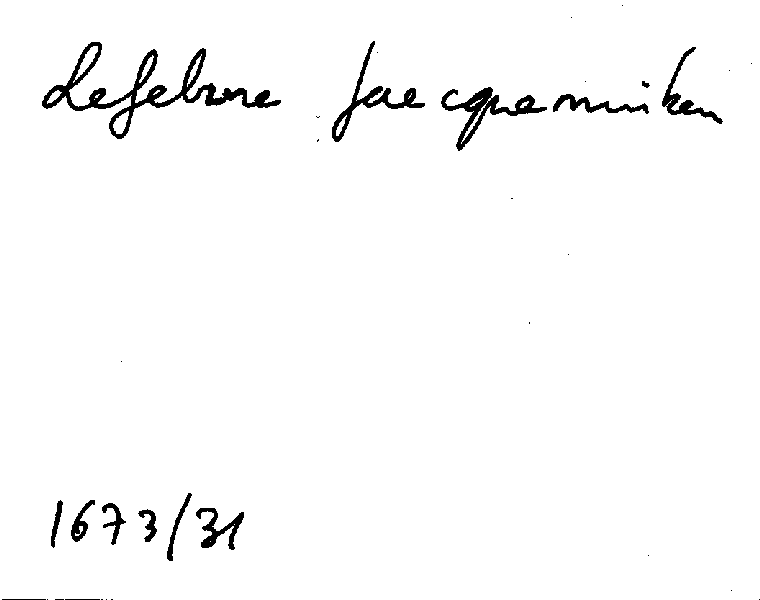 Lefebvre Jacqueminken
1673/31